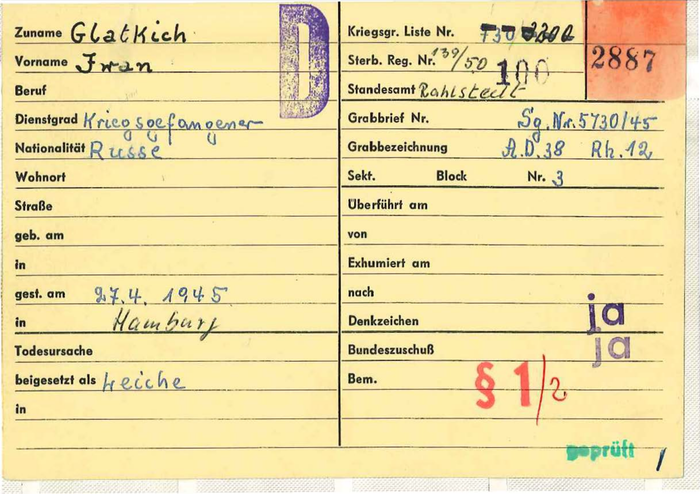 Zuname Glatkich
Vorname Iwan
Beruf
Dienstgrad Kriegsgefangener
Nationalität Russe
Wohnort
Straße
geb. am
in
gest. am 27.4. 1945
in Hamburg
Todesursache
beigesetzt als Leiche
in
D
Kriegsgr. Liste Nr.
Sterb. Reg. Nr. 139/50 100
2887
Standesamt Rahlstedt
Grabbrief Nr. Sg. Nr. 5730/45
Grabbezeichnung A.D. 38 Rh. 12
Sekt. Block Nr. 3
Überführt am
von
Exhumiert am
nach
Denkzeichen ja
Bundeszuschuß ja
Bem. § 1/2
geprüft